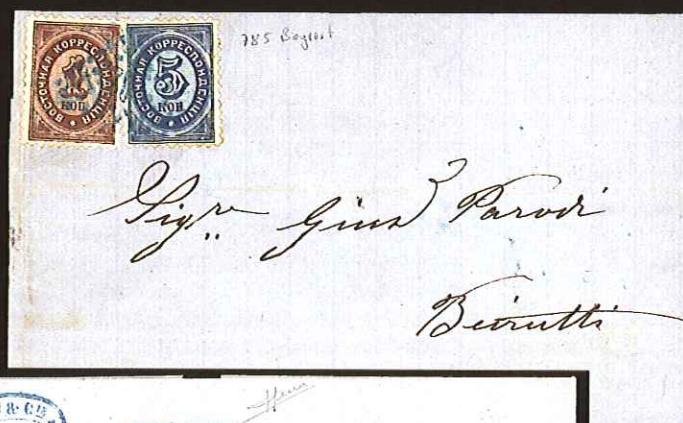 ВОСТОЧНАЯ КОРРЕСПОНДЕНЦІЯ
1
КОП
ВОСТОЧНАЯ КОРРЕСПОНДЕНЦІЯ
5
КОП
785
Sigr. Gius Parodi
Beirutti
& Co